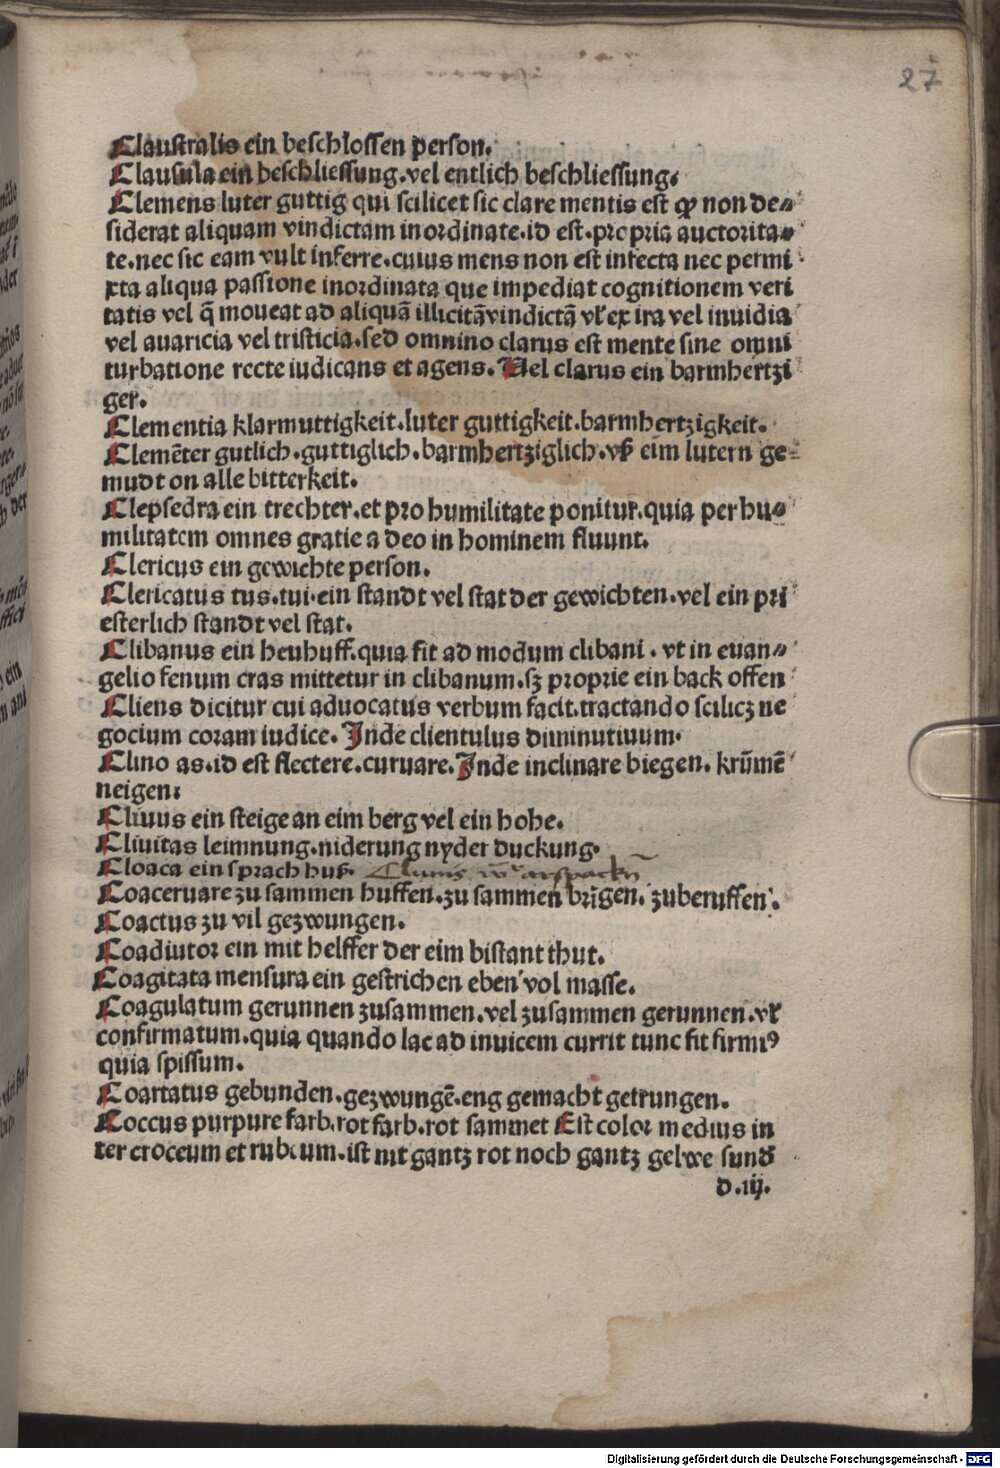 27
Claustralis ein beschlossen person.
Clausula ein beschliessung. vel entlich beschliessung.
Clemens luter guttig qui scilicet sic clare mentis est ꝙ non de⸗
siderat aliquam vindictam inordinate. id est. propria auctorita⸗
te. nec sic eam vult inferre. cuius mens non est infecta nec permi
xta aliqua passione inordinata que impediat cognitionem veri
tatis vel q̄ moueat ad aliquā illicitā vindictā vl̓ ex ira vel inuidia
vel auaricia vel tristicia. sed omnino clarus est mente sine omni
turbatione recte iudicans et agens. Uel clarus ein barmhertzi
ger.
Clementia klarmuttigkeit. luter guttigkeit. barmhertzigkeit.
Clemēter gutlich. guttiglich. barmhertziglich. vß eim lutern ge⸗
mudt on alle bitterkeit.
Clepsedra ein trechter. et pro humilitate ponitur. quia per hu⸗
militatem omnes gratie a deo in hominem fluunt.
Clericus ein gewichte person.
Clericatus tus. tui. ein standt vel stat der gewichten. vel ein pri
esterlich standt vel stat.
Clibanus ein heuhuff. quia fit ad modum clibani. vt in euan⸗
gelio fenum cras mittetur in clibanum. sꝫ proprie ein back offen
Cliens dicitur cui aduocatus verbum facit. tractando scilicꝫ ne
gocium coram iudice. Inde clientulus diminutiuum.
Clino as. id est flectere. curuare. Inde inclinare biegen. krūmē
neigen.
Cliuus ein steige an eim berg vel ein hohe.
Cliuitas leimnung. niderung nyder duckung.
Cloaca ein sprach huß. Clunis arspackn̄
Coaceruare zu sammen huffen. zu sammen brīgen. zuberuffen.
Coactus zu vil gezwungen.
Coadiutor ein mit helffer der eim bistant thut.
Coagitata mensura ein gestrichen eben vol masse.
Coagulatum gerunnen zusammen. vel zusammen gerunnen. vl̓
confirmatum. quia quando lac ad inuicem currit tunc fit firmiꝰ
quia spissum.
Coartatus gebunden. gezwungē. eng gemacht getrungen.
Coccus purpure farb. rot farb. rot sammet Est color medius in
ter croceum et rubeum. ist nit gantz rot noch gantz gelwe sund̓
d.iij.
Digitalisierung gefördert durch die Deutsche Forschungsgemeinschaft - DFG